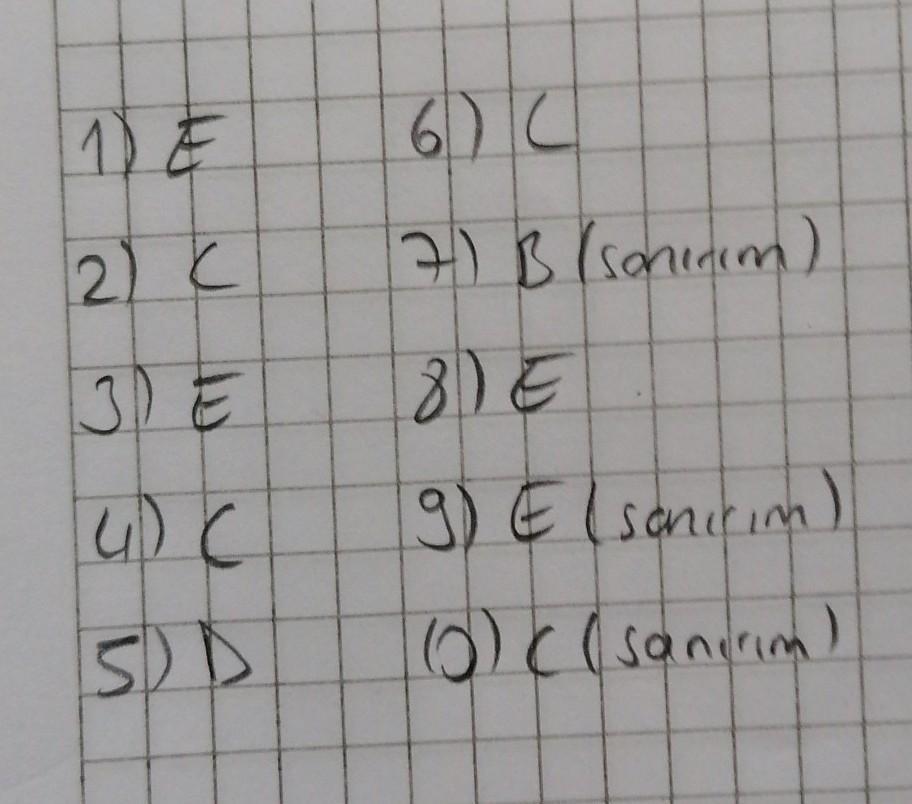 1) E
2) C
3) E
4) C
5) D
6) C
7) B (sanırım)
8) E
9) E (sanırım)
10) C (sanırım)